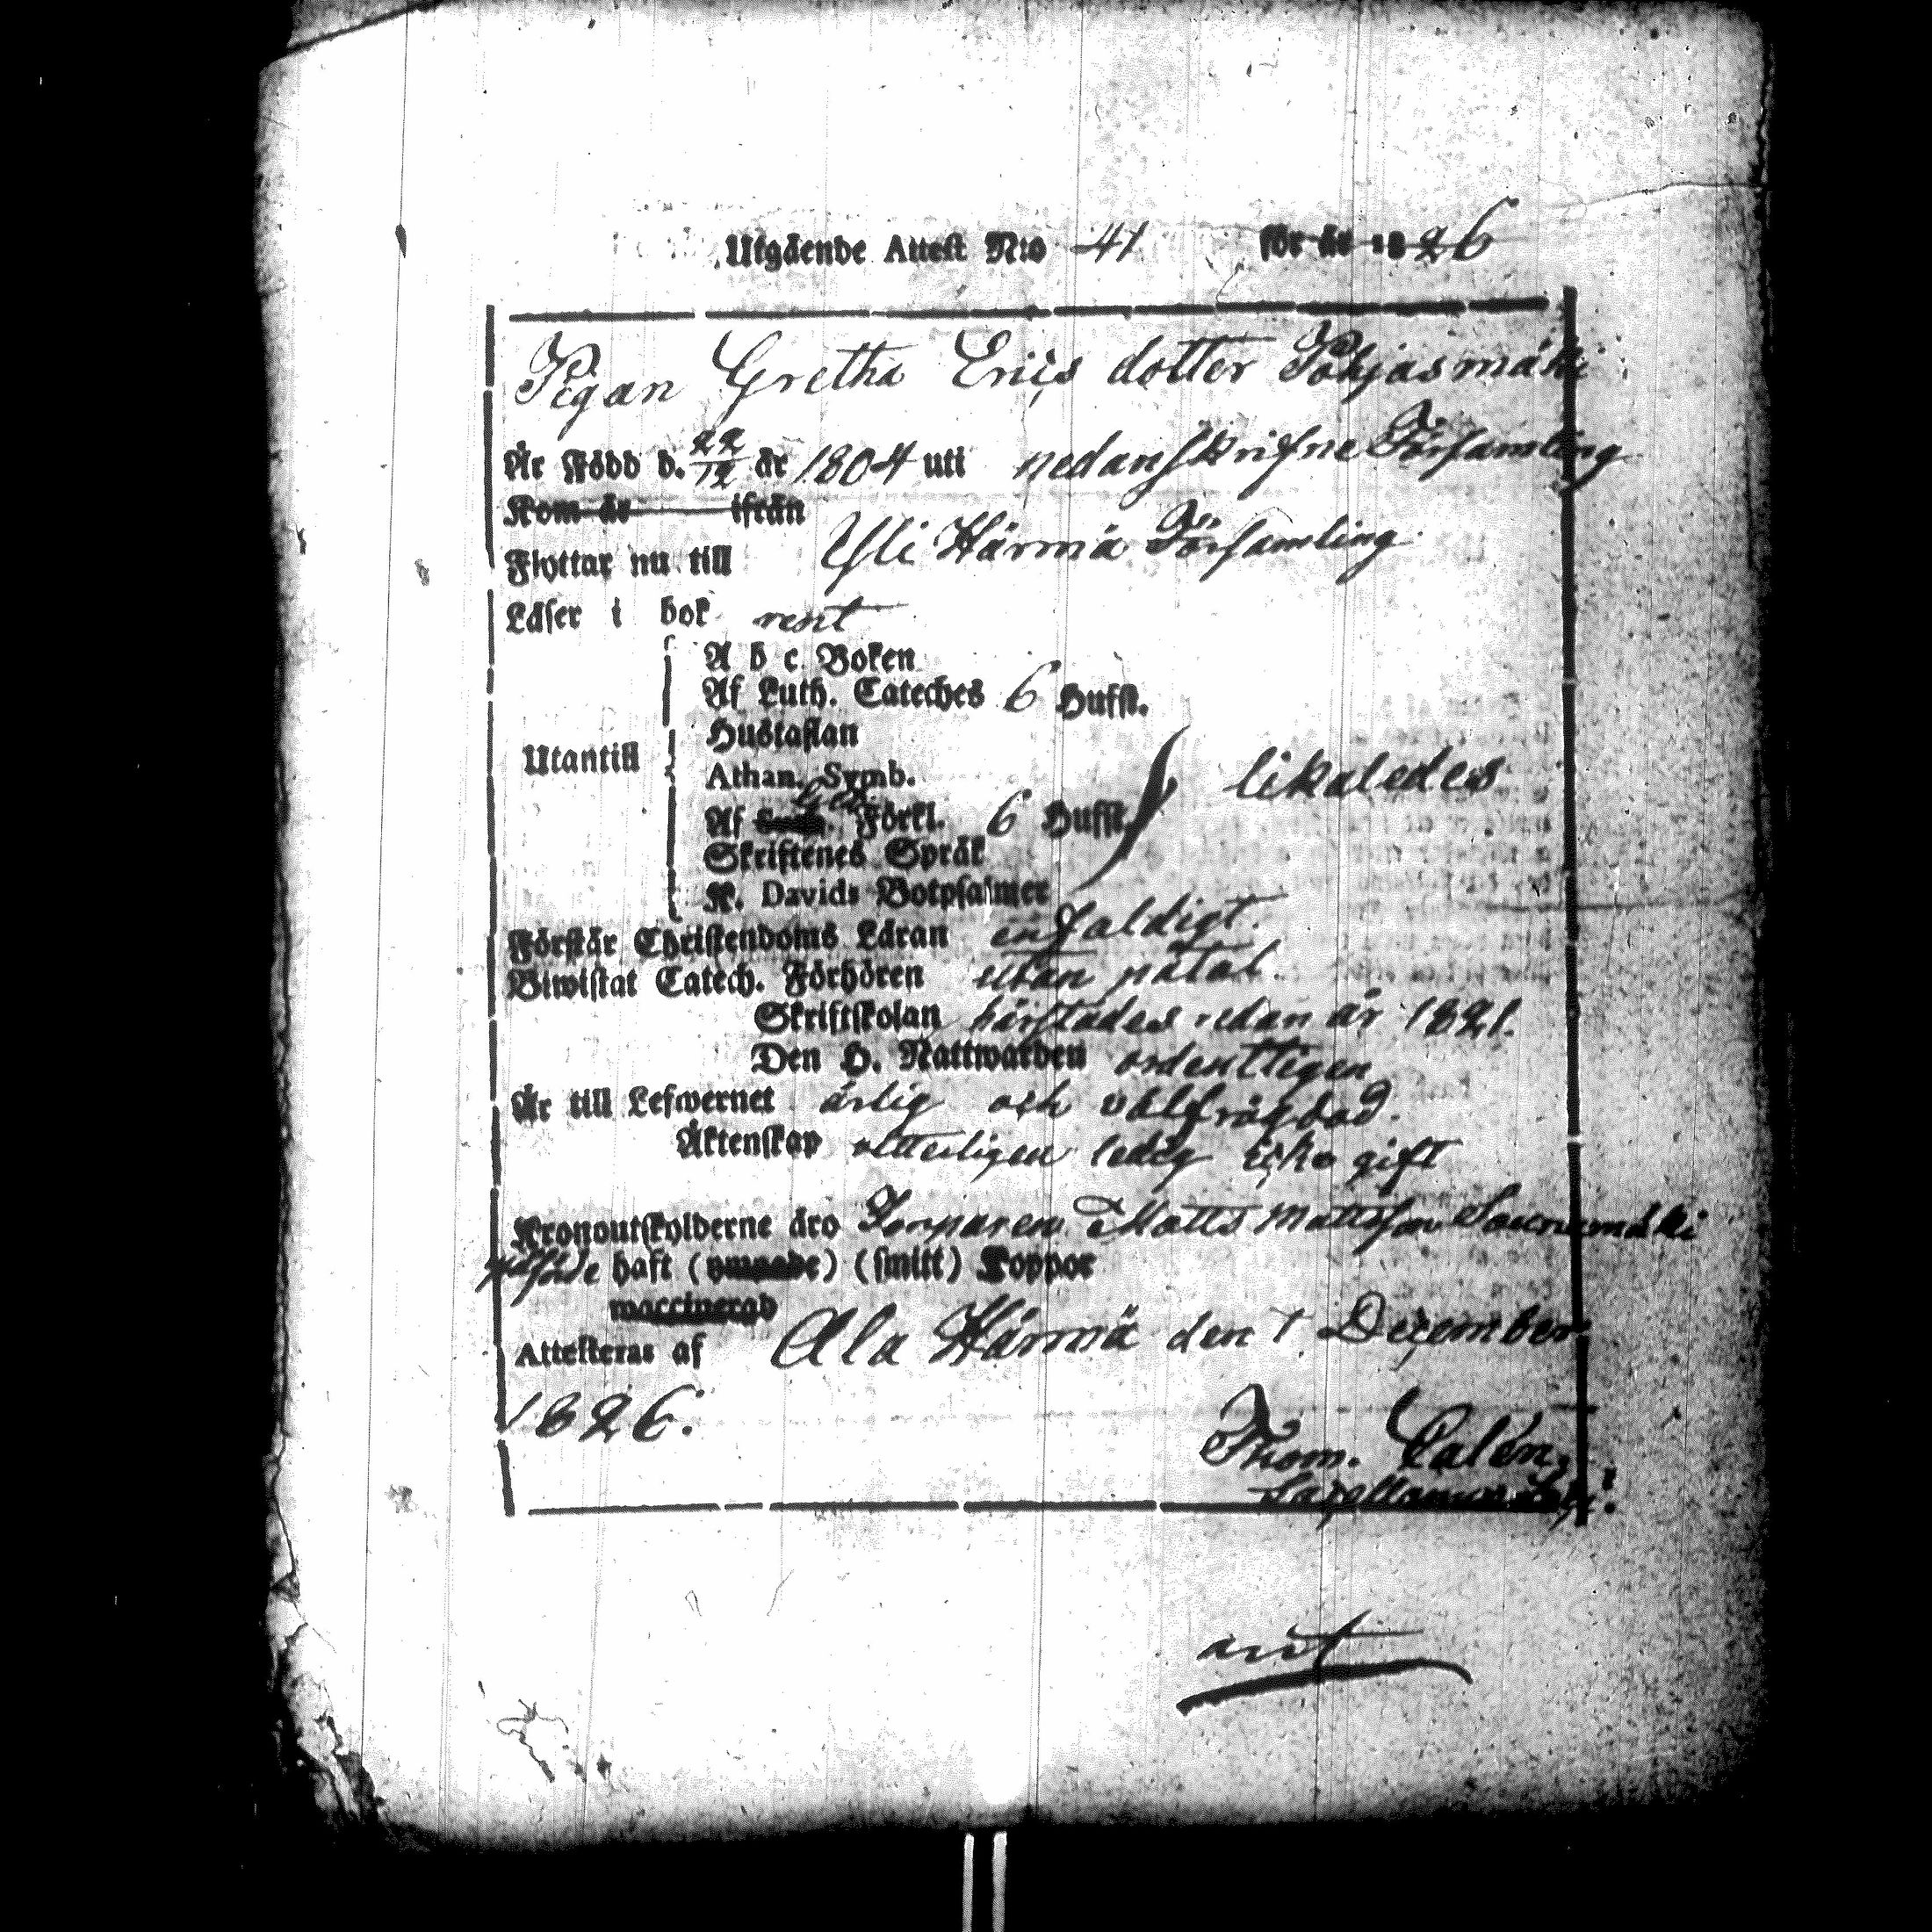 Utgående Attest N:o 41 för år 1826
Pigan Gretha Erics dotter Pohjasmäki
Är Född d. 22/12 år 1804 uti nedanskrifne Församling
Kom år ifrån
Flyttar nu till Yli Härmä Församling
Läser i bok rent
A b c Boken
Af Luth. Cateches 6 Hufst.
Hustaflan
Utantill
Athan. Symb. likaledes
Af Förkl. 6 Hufst.
Skriftenes Språk
K. Davids Botpsalmer
Förstår Christendoms Läran enfaldigt
Biwistat Catech. Förhören utan påtal
Skriftskolan härstädes redan år 1821.
Den H. Nattwarden ordentligen
Är till Lefwernet ärlig och välfrägdad
Äktenskap vetterligen ledig icke gift
Kronoutskylderne äro Torparen Matts Mattsson
haft ( ) (smitt) Koppor
waccinerad
Attesteras af Ala Härmä den 7 December
1826.
Thom. Calén,